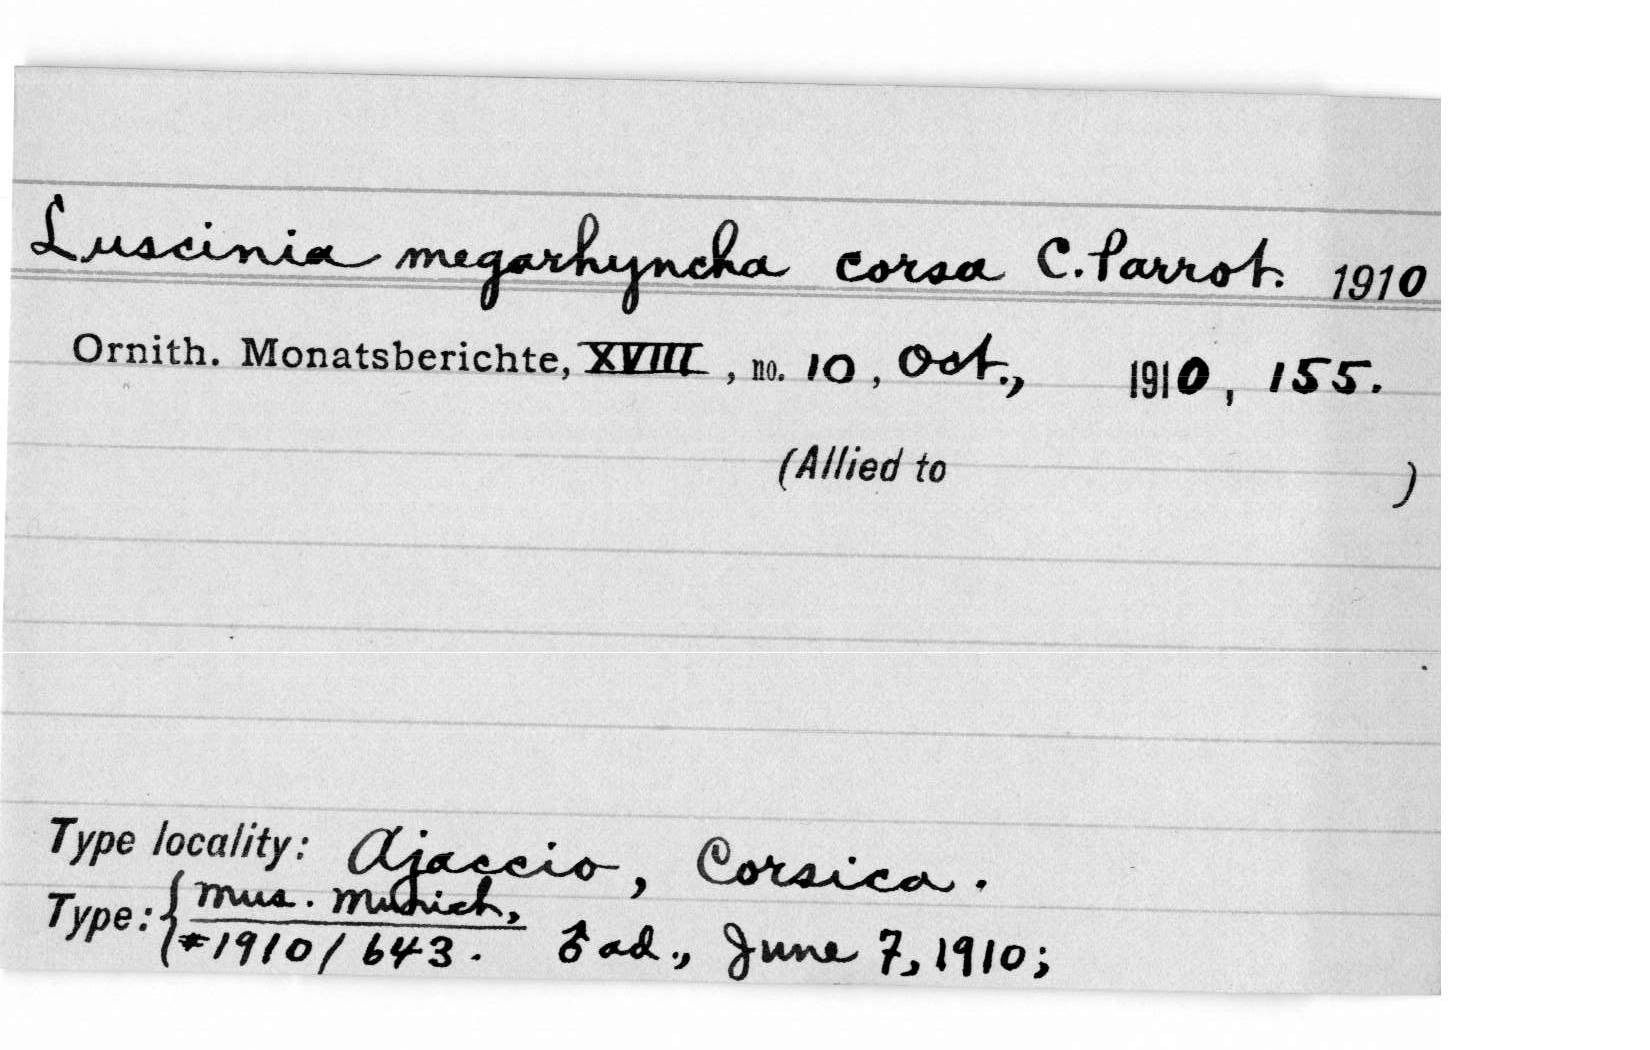 Luscinia megarhyncha corsa C. Parrot. 1910
Ornith. Monatsberichte, XVIII, no. 10, Oct., 1910, 155.
(Allied to )
Type locality: Ajaccio, Corsica.
Type: { Mus. Munich,
#1910/643. ♂ ad., June 7, 1910;